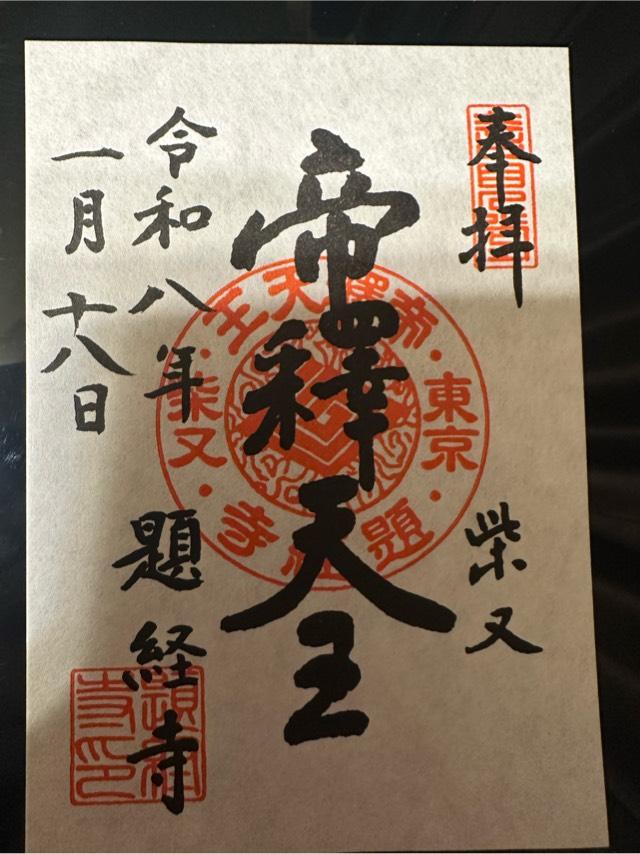 奉拝
柴又
帝釋天王
令和八年
一月十八日
題経寺
帝釋天王
東京
柴又
題経寺
題経寺印